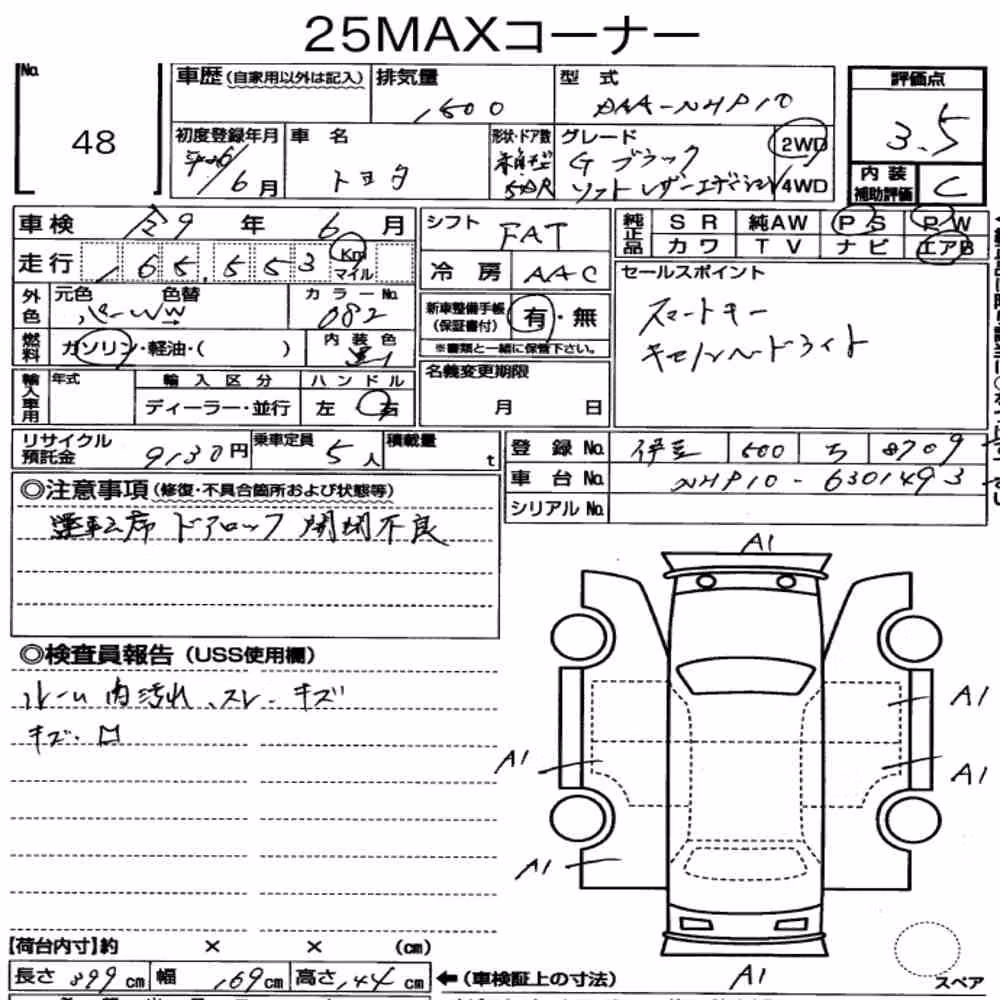 25MAXコーナー
No. 48
車歴(自家用以外は記入) 排気量 1500 型 式 DAA-NHP10
評価点 3.5
初度登録年月 平26/6月 車 名 トヨタ 形状・ドア数 5DR グレード G ブラック ソフトレザーエディション 2WD 4WD
内装補助評価 C
車検 R9年 6月 シフト FAT 純正品 SR 純AW PS PW
走行 165,553 Km マイル 冷 房 AAC カワ TV ナビ エアB
外色 元色 パールW 色替 カラーNo. 082 新車整備手帳(保証書付) 有・無 セールスポイント
スマートキー
キセノンヘッドライト
燃料 ガソリン・軽油・( ) 内装色 黒 ※書類と一緒に保管下さい。
輸入車用 年式 輸入区分 ハンドル 名義変更期限
ディーラー・並行 左 右 月 日
リサイクル預託金 9130円 乗車定員 5人 積載量 t 登 録 No. 伊豆 500 ち 8709
◎注意事項(修復・不具合箇所および状態等) 車 台 No. NHP10-6301493
運転席 ドアロック 開閉不良 シリアルNo.
A1
◎検査員報告(USS使用欄)
ルーム内汚れ、スレ・キズ
キズ・凹
A1
A1
A1
A1
A1
【荷台内寸】約 × × (cm)
長さ 399cm 幅 169cm 高さ 144cm ←(車検証上の寸法)
スペア